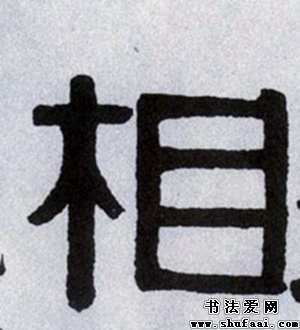 相
书法爱网
www.shufaai.com